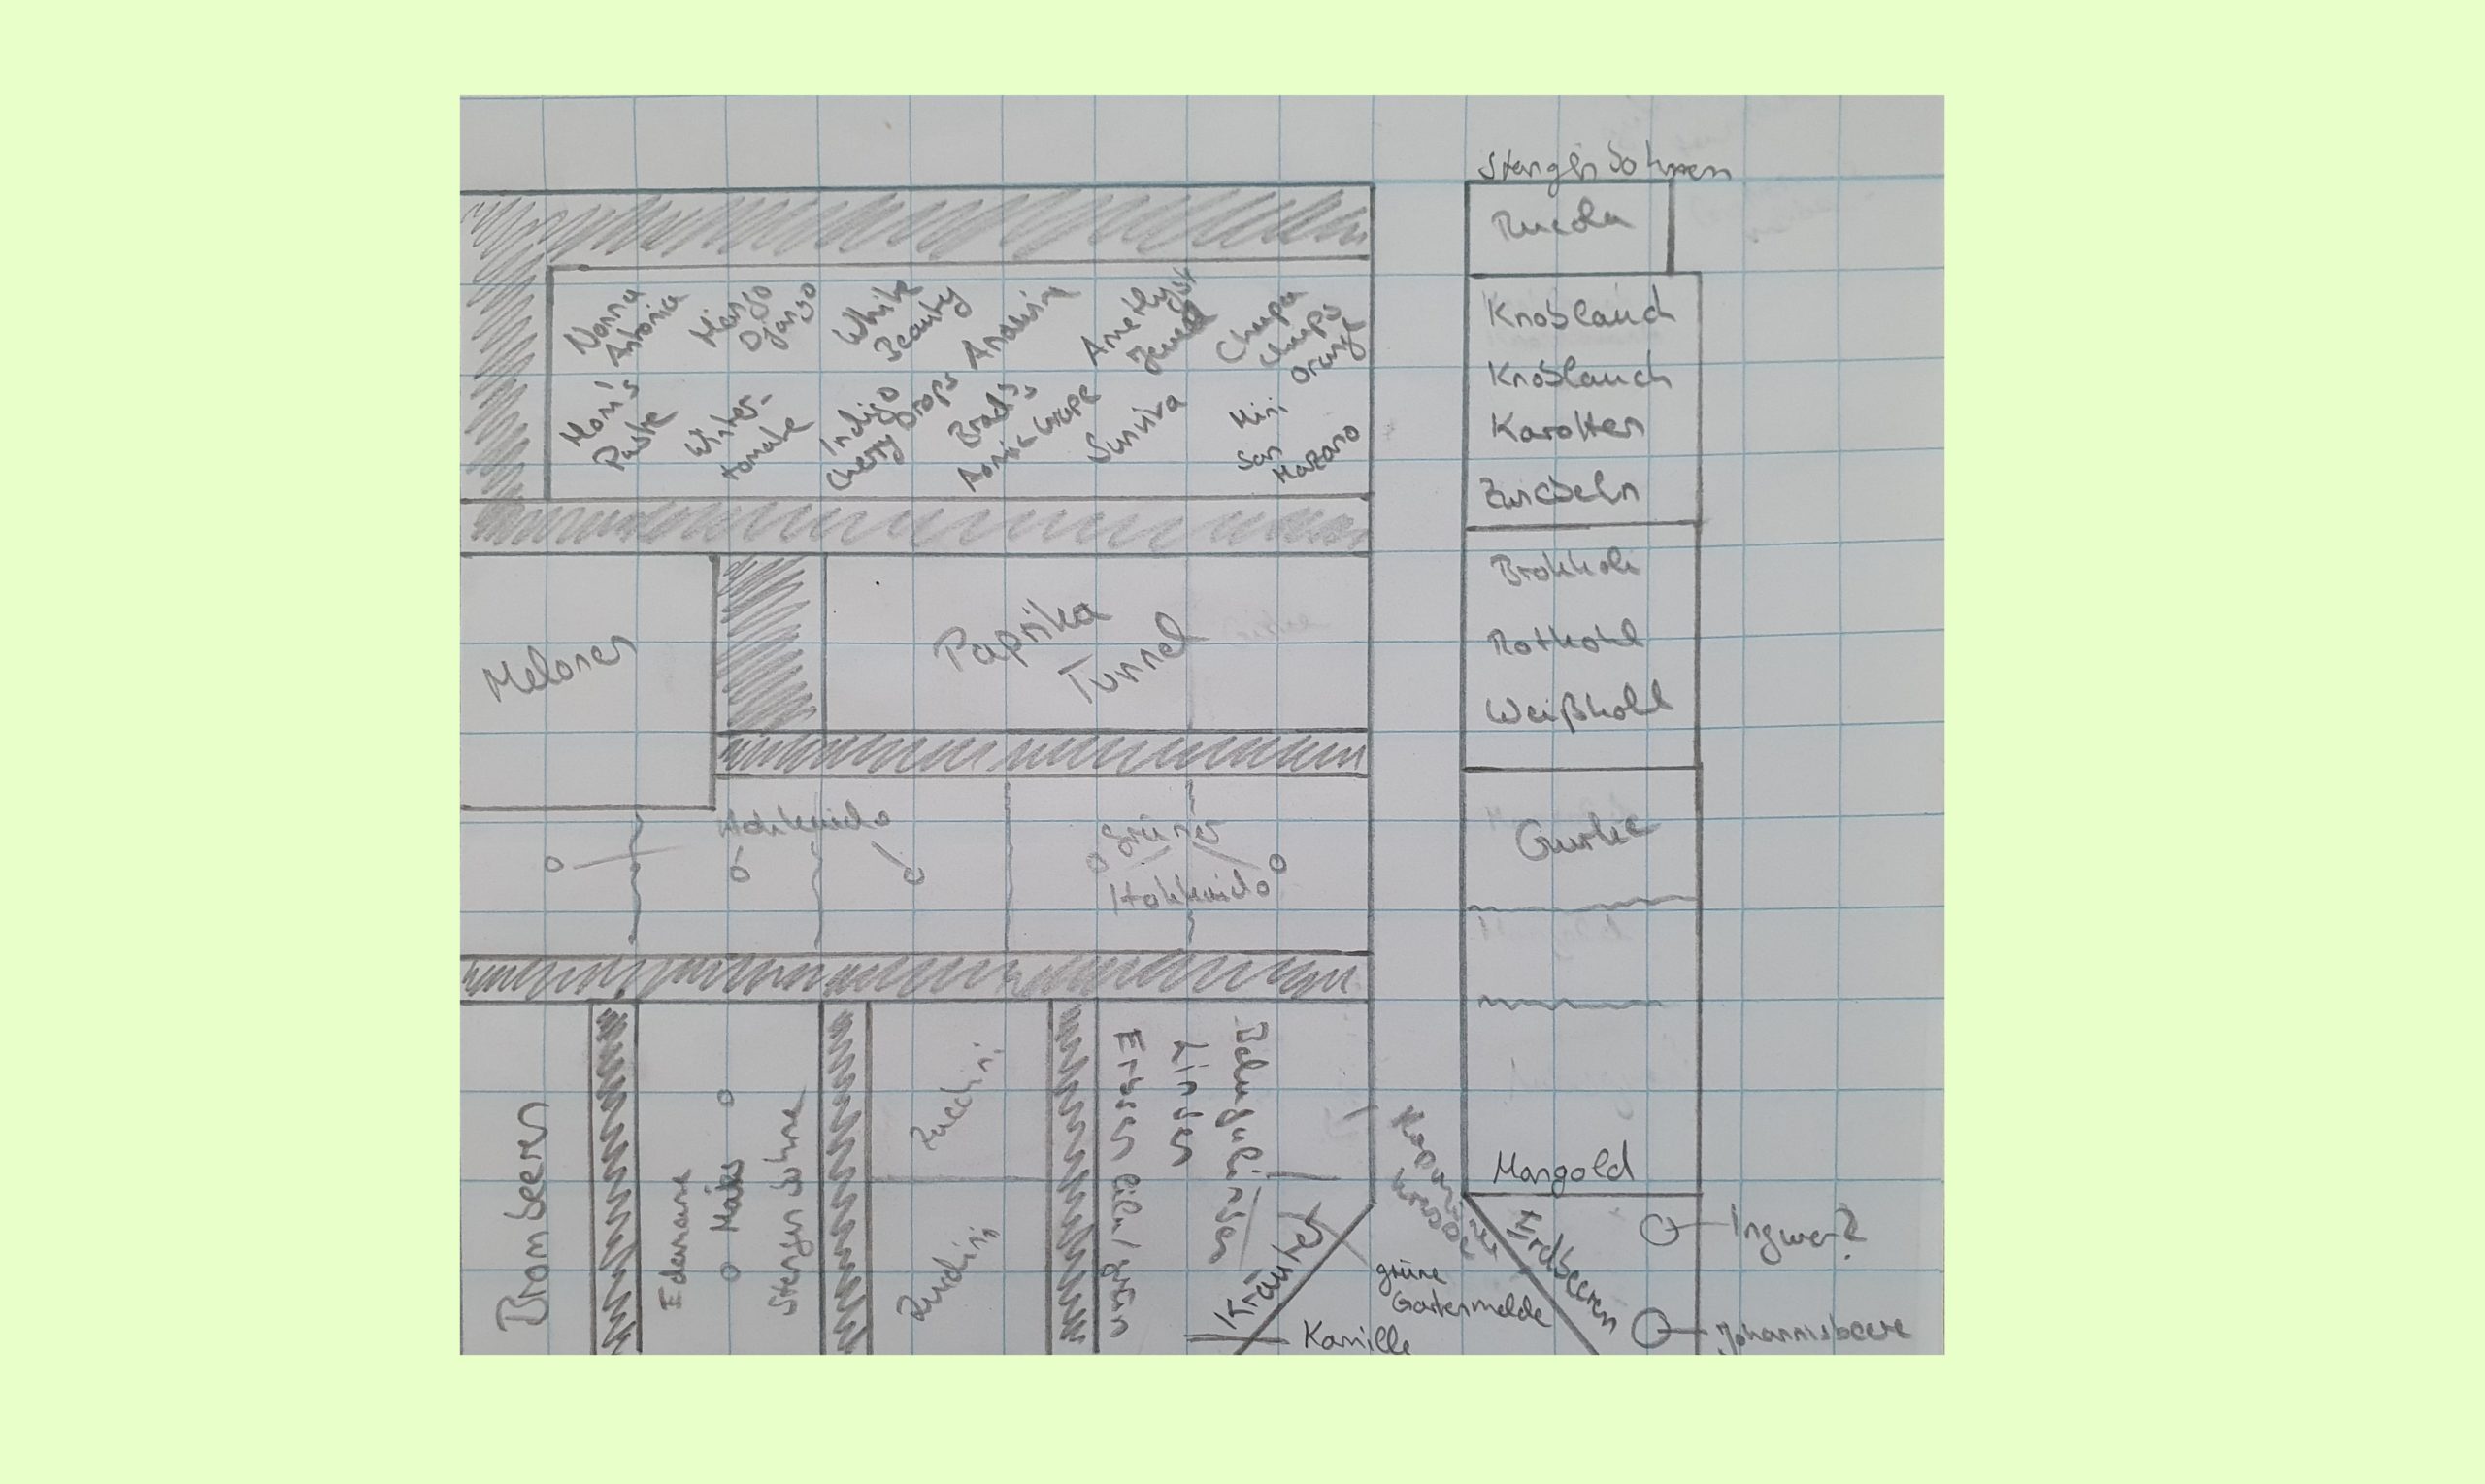 Stangenbohnen
Rucola
Nonna
Antonia
Mango
Django
White
Beauty
Andenhorn
Amethyst
Jewel
Chupa
Chups
Orange
Mom's
Paste
Winter-
tomate
Indigo
Cherry Drops
Brad's
Atomic Grape
Surviva
Mini
San
Marzano
Knoblauch
Knoblauch
Karotten
Zwiebeln
Melonen
Paprika
Tunnel
Brokkoli
Rotkohl
Weißkohl
Hokkaido
Grüner
Hokkaido
Gurke
Brombeeren
Edamame
Mais
Stangenbohne
Zucchini
Zucchini
Erbsen lila/grün
Linsen
Kräuter
Kamille
grüne
Gartenmelde
Kapuziner
kresse
Mangold
Erdbeeren
Ingwer?
Johannisbeere